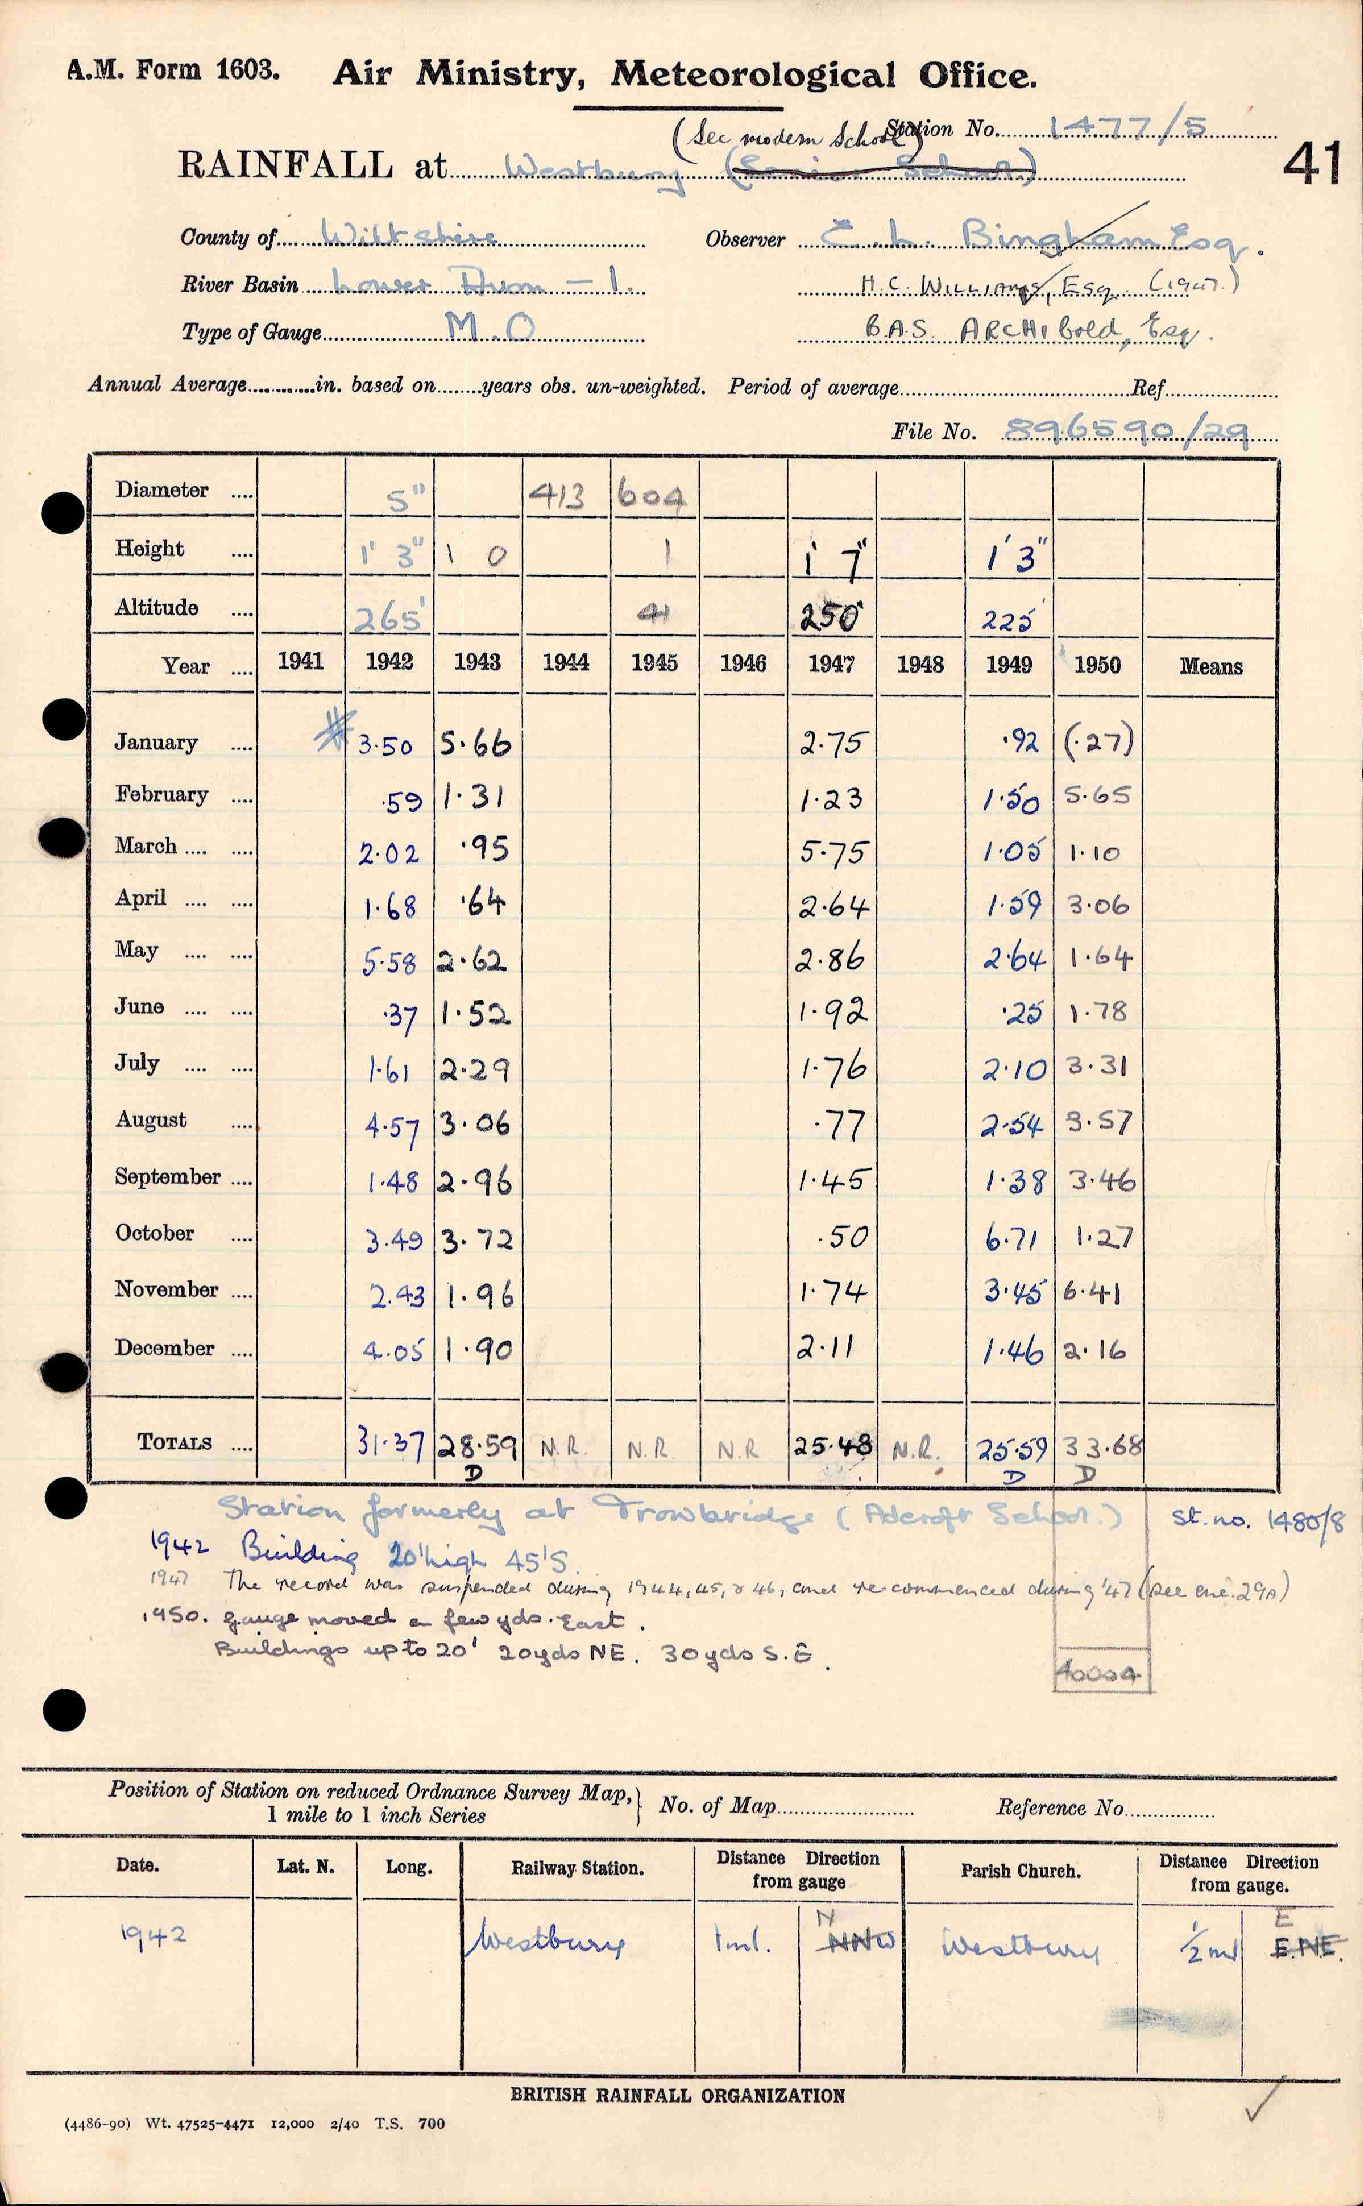 A.M. Form 1603. Air Ministry, Meteorological Office.
Station No. 1477/5
(Sec modern School)
RAINFALL at Westbury (Senior School.)
41
County of Wiltshire Observer E. L. Bingham Esq.
River Basin Lower Avon - 1. H.C. WILLIAMS, ESQ. (1947.)
Type of Gauge M.O B.A.S. ARCHIBOLD, Esq.
Annual Average in. based on years obs. un-weighted. Period of average Ref.
File No. 896590/29
Diameter 5" 413 604
Height 1' 3" 1 0 1 1' 7" 1' 3"
Altitude 265' 41 250' 225'
Year 1941 1942 1943 1944 1945 1946 1947 1948 1949 1950 Means
January # 3.50 5.66 2.75 .92 (.27)
February .59 1.31 1.23 1.50 5.65
March 2.02 .95 5.75 1.05 1.10
April 1.68 .64 2.64 1.59 3.06
May 5.58 2.62 2.86 2.64 1.64
June .37 1.52 1.92 .25 1.78
July 1.61 2.29 1.76 2.10 3.31
August 4.57 3.06 .77 2.54 3.57
September 1.48 2.96 1.45 1.38 3.46
October 3.49 3.72 .50 6.71 1.27
November 2.43 1.96 1.74 3.45 6.41
December 4.05 1.90 2.11 1.46 2.16
TOTALS 31.37 28.59 N.R. N.R. N.R. 25.48 N.R. 25.59 33.68
D D D
Station formerly at Trowbridge (Adcroft School.) St. no. 1480/8
1942 Building 20' high 45'S.
1947 The record was suspended during 1944, 45, & 46, and re-commenced during '47 (see enc. 29A)
1950. gauge moved a few yds. East.
Buildings up to 20' 20yds NE. 30yds S.E.
40004
Position of Station on reduced Ordnance Survey Map, 1 mile to 1 inch Series } No. of Map Reference No.
Date. Lat. N. Long. Railway Station. Distance Direction from gauge Parish Church. Distance Direction from gauge.
N E
1942 Westbury 1ml. NNW Westbury 1/2 ml E.NE.
BRITISH RAINFALL ORGANIZATION
(4486-90) Wt. 47525-4471 12,000 2/40 T.S. 700